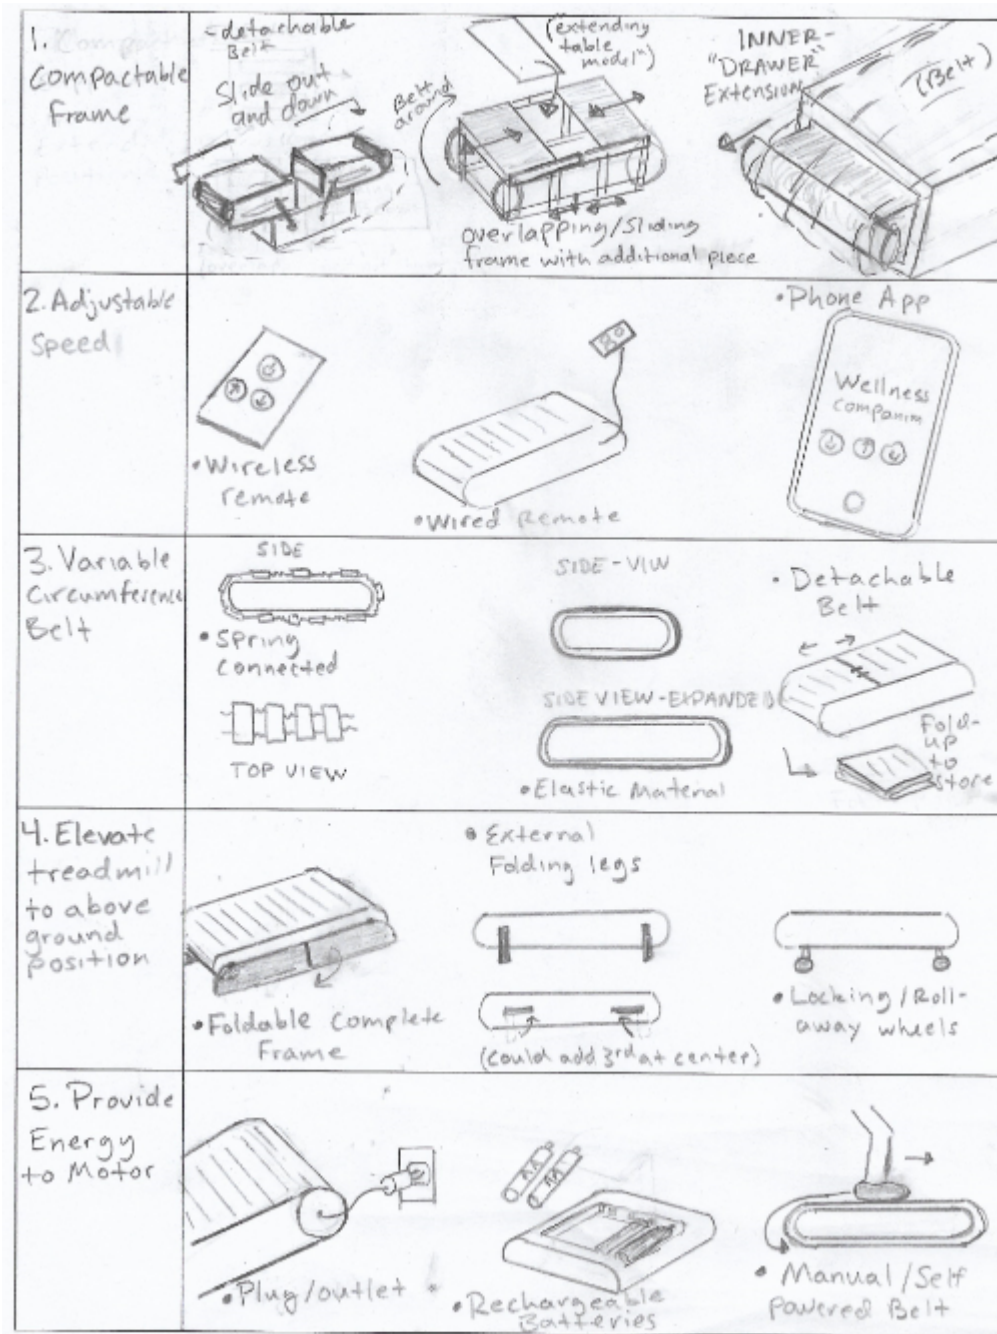 1.
Compactable
Frame
-detachable
Belt
Slide out
and down
Belt
around
("extending
table
model")
overlapping/Sliding
frame with additional piece
INNER-
"DRAWER"
Extension
(Belt)
2. Adjustable
Speed
•Wireless
remote
•Wired Remote
•Phone App
Wellness
companion
3. Variable
Circumference
Belt
SIDE
•Spring
Connected
TOP VIEW
SIDE-VIW
SIDE VIEW-EXPANDED
•Elastic Material
•Detachable
Belt
Fold-
up
to
store
4. Elevate
treadmill
to above
ground
position
•Foldable Complete
Frame
•External
Folding legs
(Could add 3rd at center)
•Locking/Roll-
away wheels
5. Provide
Energy
to Motor
•Plug/outlet
AA
AA
•Rechargeable
Batteries
•Manual/Self
Powered Belt